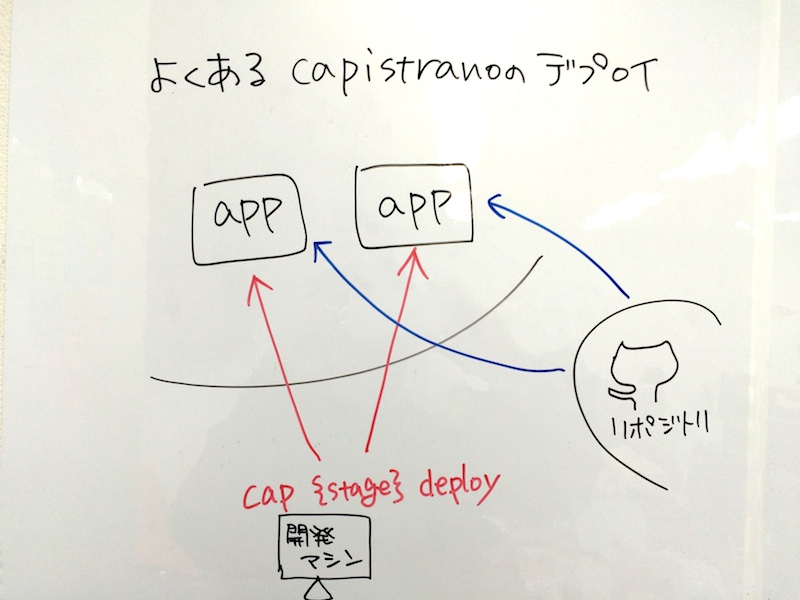 よくある capistranoの デプロイ
app
app
リポジトリ
cap {stage} deploy
開発
マシン